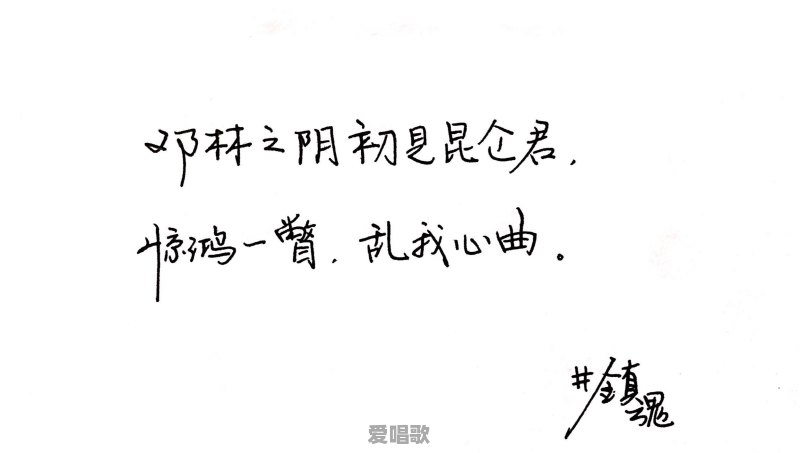 邓林之阴初见昆仑君，
惊鸿一瞥，乱我心曲。
#镇魂
爱唱歌